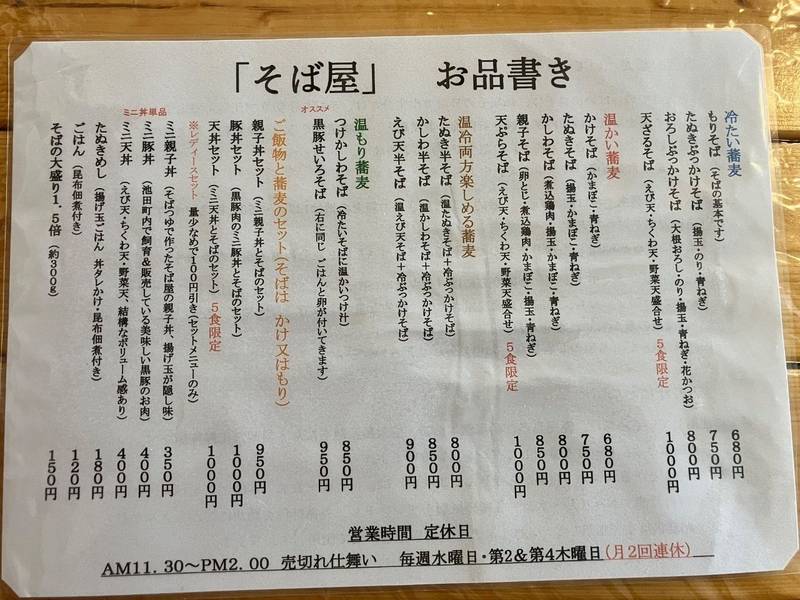 「そば屋」 お品書き
冷たい蕎麦
もりそば (そばの基本です) 680円
たぬきぶっかけそば (揚玉・のり・青ねぎ) 750円
おろしぶっかけそば (大根おろし・のり・揚玉・青ねぎ・花かつお) 800円
天ざるそば (えび天・ちくわ天・野菜天盛合せ) 5食限定 1000円
温かい蕎麦
かけそば (かまぼこ・青ねぎ) 680円
たぬきそば (揚玉・かまぼこ・青ねぎ) 750円
かしわそば (煮込鶏肉、揚玉・かまぼこ・青ねぎ) 800円
親子そば (卵とじ・煮込鶏肉・かまぼこ・揚玉・青ねぎ) 850円
天ぷらそば (えび天・ちくわ天・野菜天盛合せ) 5食限定 1000円
温冷両方楽しめる蕎麦
たぬき半そば (温たぬきそば+冷ぶっかけそば) 800円
かしわ半そば (温かしわそば+冷ぶっかけそば) 850円
えび天半そば (温えび天そば+冷ぶっかけそば) 900円
温もり蕎麦
つけかしわそば (冷たいそばに温かいつけ汁) 850円
オススメ
黒豚せいろそば (右に同じ ごはんと卵が付いてきます) 950円
ご飯物と蕎麦のセット(そばは かけ又はもり)
親子丼セット (ミニ親子丼とそばのセット) 950円
豚丼セット (黒豚肉のミニ豚丼とそばのセット) 1000円
天丼セット (ミニ天丼とそばのセット) 5食限定 1000円
※レディースセット 量少なめで100円引き(セットメニューのみ)
ミニ丼単品
ミニ親子丼 (そばつゆで作ったそば屋の親子丼、揚げ玉が隠し味) 350円
ミニ豚丼 (池田町内で飼育&販売している美味しい黒豚のお肉) 400円
ミニ天丼 (えび天・ちくわ天・野菜天、結構なボリューム感あり) 400円
たぬきめし (揚げ玉ごはん、丼タレかけ・昆布佃煮付き) 180円
ごはん (昆布佃煮付き) 120円
そばの大盛り1.5倍 (約300g) 150円
営業時間 定休日
AM11.30~PM2.00 売切れ仕舞い 毎週水曜日・第2&第4木曜日(月2回連休)